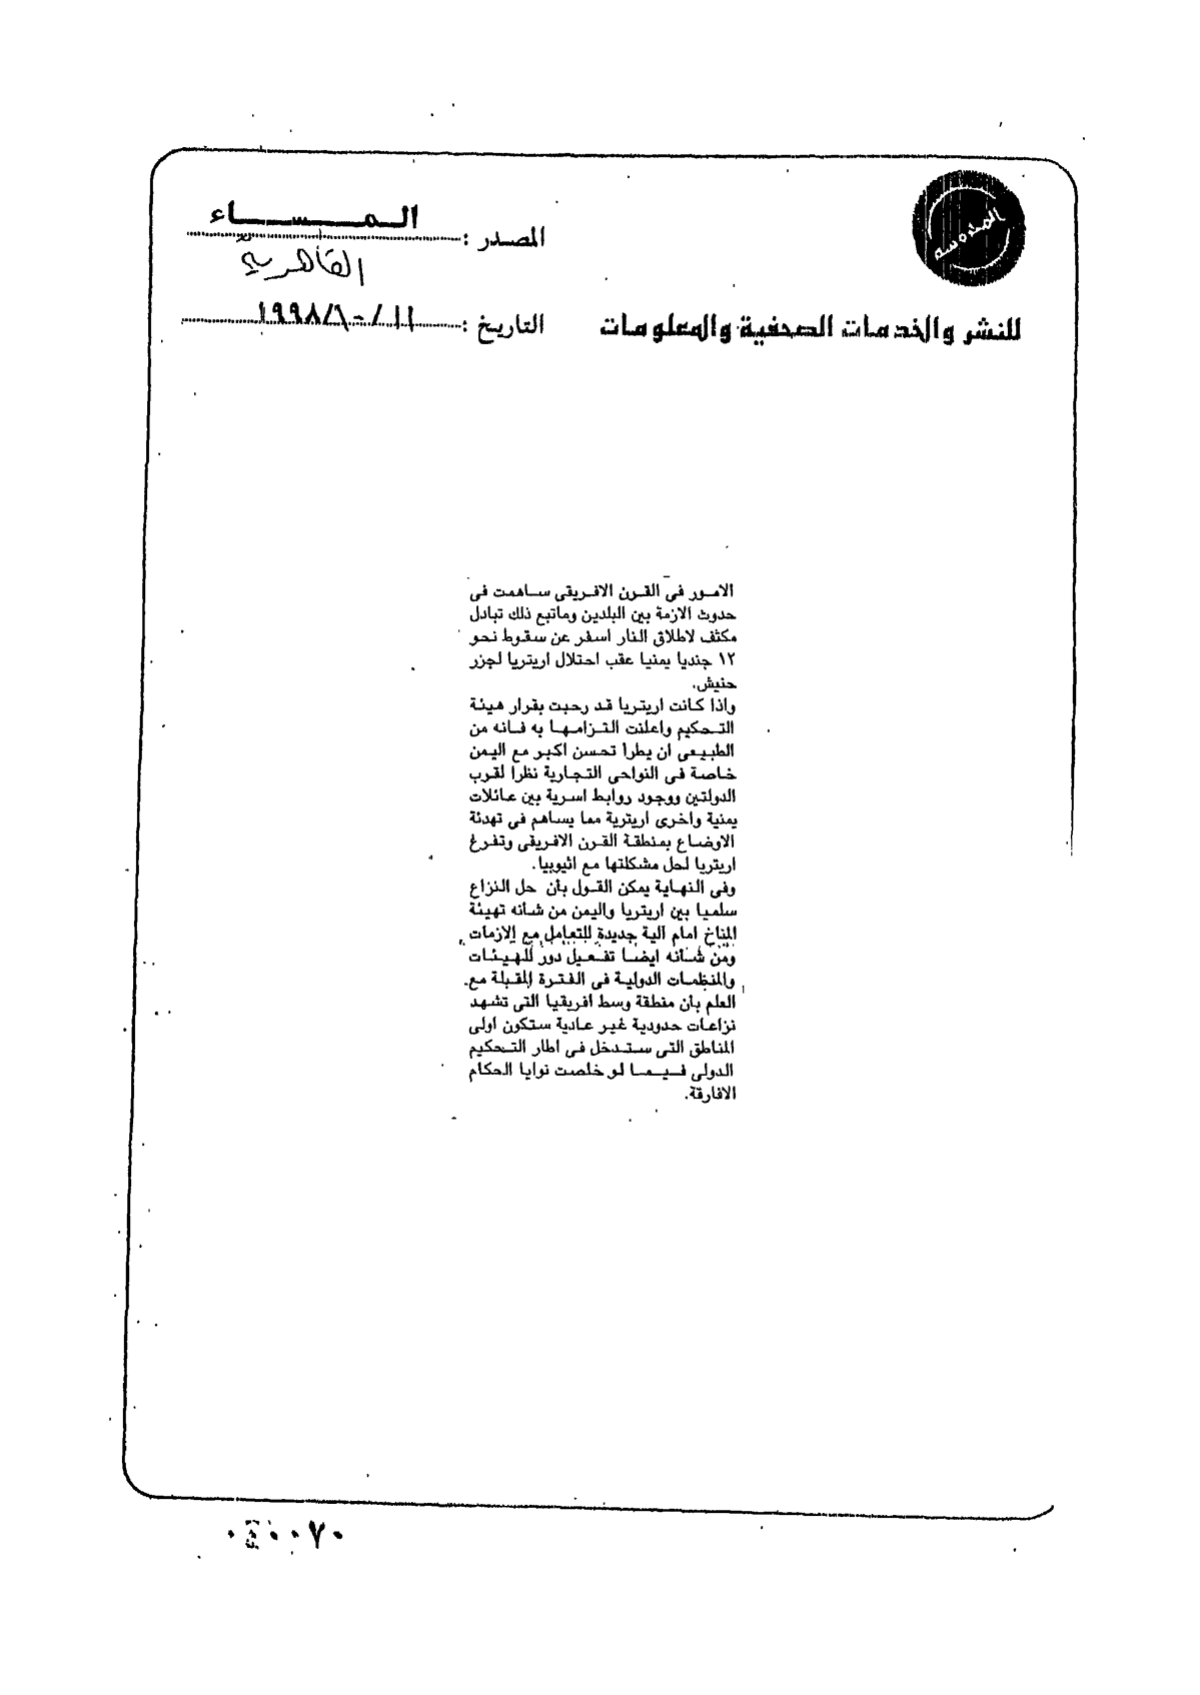 المصدر : المساء
القاهرية
للنشر والخدمات الصحفية والمعلومات
التاريخ : ١١ / ١٠ / ١٩٩٨
الامور فى القرن الافريقى ساهمت فى
حدوث الازمة بين البلدين وماتبع ذلك تبادل
مكثف لاطلاق النار اسفر عن سقوط نحو
١٢ جنديا يمنيا عقب احتلال اريتريا لجزر
حنيش.
واذا كانت اريتريا قد رحبت بقرار هيئة
التحكيم واعلنت التزامها به فانه من
الطبيعى ان يطرا تحسن اكبر مع اليمن
خاصة فى النواحى التجارية نظرا لقرب
الدولتين ووجود روابط اسرية بين عائلات
يمنية واخرى اريترية مما يساهم فى تهدئة
الاوضاع بمنطقة القرن الافريقى وتفرغ
اريتريا لحل مشكلتها مع اثيوبيا.
وفى النهاية يمكن القول بأن حل النزاع
سلميا بين اريتريا واليمن من شانه تهيئة
المناخ امام الية جديدة للتعامل مع الازمات
ومن شانه ايضا تفعيل دور للهيئات
والمنظمات الدولية فى الفترة المقبلة مع
العلم بان منطقة وسط افريقيا التى تشهد
نزاعات حدودية غير عادية ستكون اولى
المناطق التى ستدخل فى اطار التحكيم
الدولى فيما لو خلصت نوايا الحكام
الافارقة.